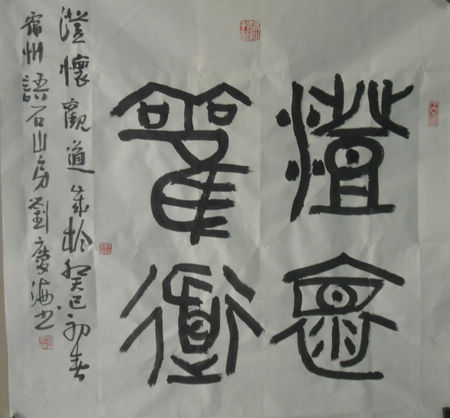 澄懷
觀道
澄懷觀道 歲於癸巳初春
宿州語石山房劉慶海書